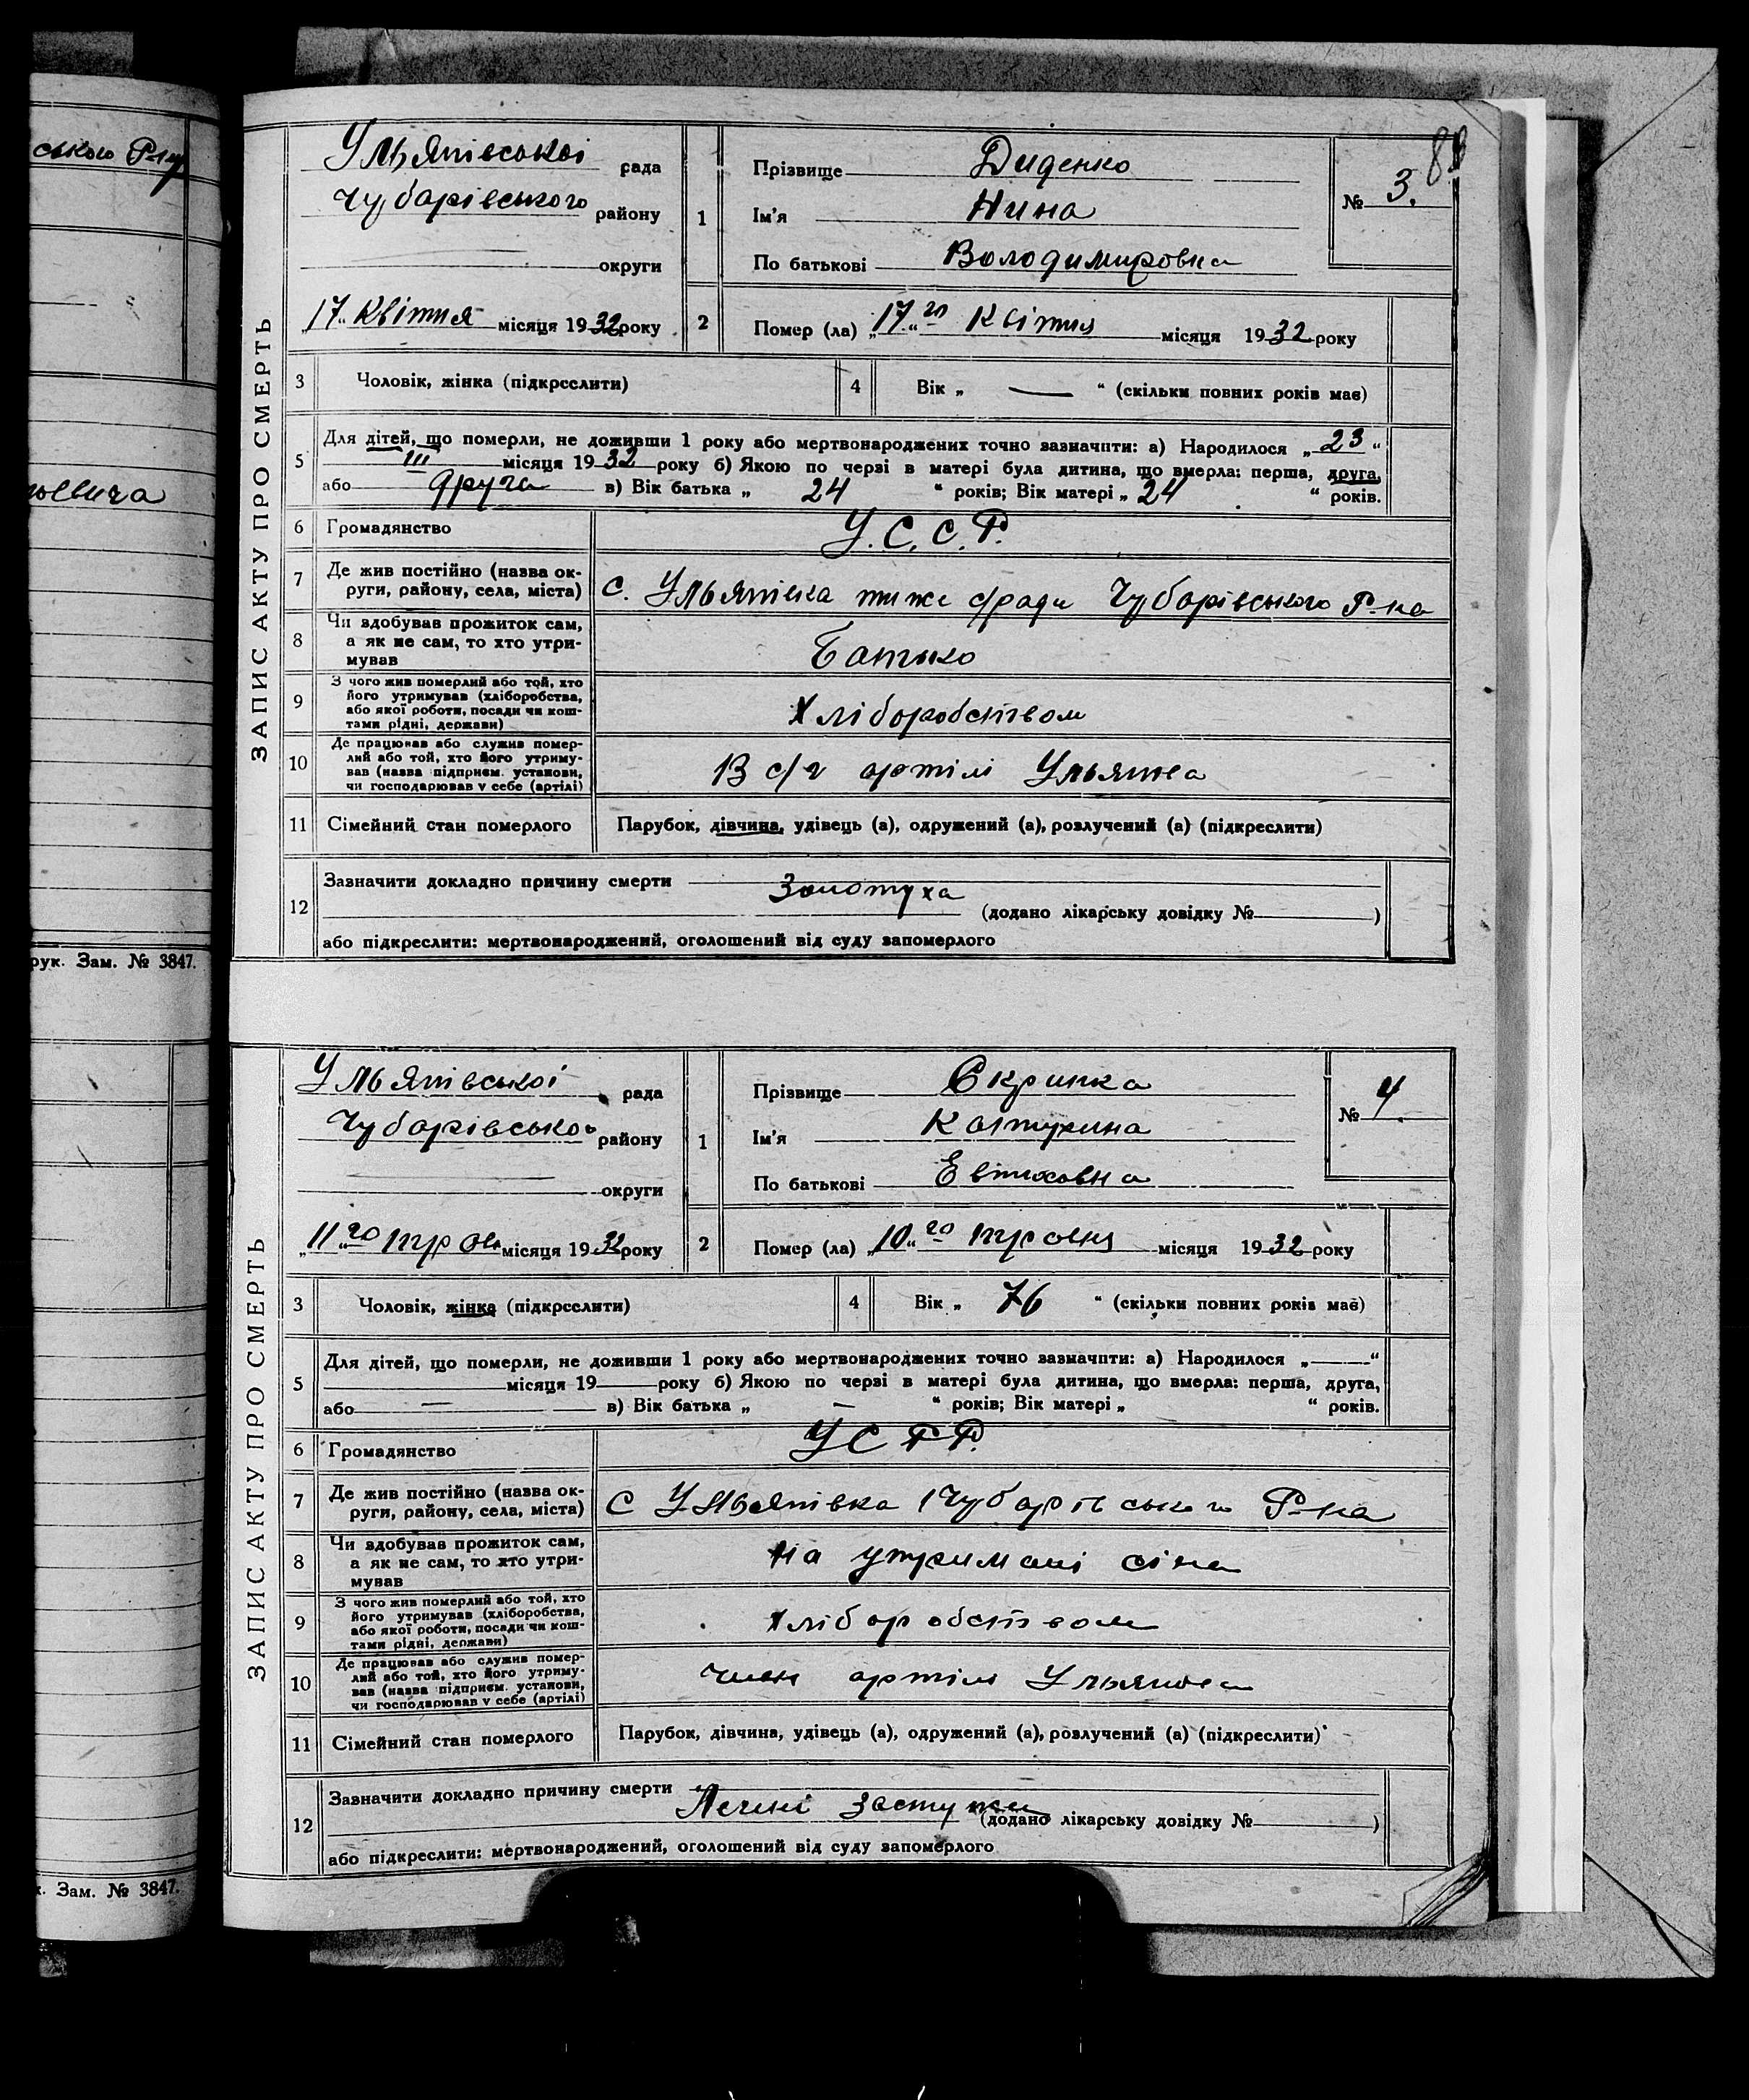 ського Р-ну
80
ЗАПИС АКТУ ПРО СМЕРТЬ
Ульянівської рада
Чубарівського району
округи
„17“ Квітня місяця 1932 року
1
Прізвище Диденко
Ім'я Нина
По батькові Володимировна
№ 3.
2
Помер (ла) „17“го Квітня місяця 1932 року
3 Чоловік, жінка (підкреслити)
4 Вік „ — “ (скільки повних років має)
5 Для дітей, що померли, не доживши 1 року або мертвонароджених точно зазначити: а) Народилося „23“
III місяця 1932 року б) Якою по черзі в матері була дитина, що вмерла: перша, друга,
або друга в) Вік батька „ 24 “ років; Вік матері „ 24 “ років.
6 Громадянство У.С.С.Р.
7 Де жив постійно (назва ок-
руги, району, села, міста) с. Ульянівка тиж с/ради Чубарівського Р-на
8 Чи здобував прожиток сам,
а як не сам, то хто утри-
мував Батько
9 З чого жив померлий або той, хто
його утримував (хліборобства,
або якої роботи, посади чи кош-
тами рідні, держави) Хліборобством
10 Де працював або служив помер-
лий або той, хто його утриму-
вав (назва підприєм. установи,
чи господарював у себе (артілі) В с/г артілі
11 Сімейний стан померлого Парубок, дівчина, удівець (а), одружений (а), розлучений (а) (підкреслити)
12 Зазначити докладно причину смерти
Золотуха (додано лікарську довідку № )
або підкреслити: мертвонароджений, оголошений від суду запомерлого
рук. Зам. № 3847.
ЗАПИС АКТУ ПРО СМЕРТЬ
Ульянівської рада
Чубарівського району
округи
„11“го трав місяця 1932 року
1
Прізвище Скрипка
Ім'я Катерина
По батькові Евтиховна
№ 4.
2
Помер (ла) „10“го травня місяця 1932 року
3 Чоловік, жінка (підкреслити)
4 Вік „ 76 “ (скільки повних років має)
5 Для дітей, що померли, не доживши 1 року або мертвонароджених точно зазначити: а) Народилося „ — “
місяця 19 року б) Якою по черзі в матері була дитина, що вмерла: перша, друга,
або — в) Вік батька „ — “ років; Вік матері „ “ років.
6 Громадянство УСРР.
7 Де жив постійно (назва ок-
руги, району, села, міста) с Ульянівка Чубарівського Р-на
8 Чи здобував прожиток сам,
а як не сам, то хто утри-
мував На утримані сина
9 З чого жив померлий або той, хто
його утримував (хліборобства,
або якої роботи, посади чи кош-
тами рідні, держави) хліборобством
10 Де працював або служив помер-
лий або той, хто його утриму-
вав (назва підприєм. установи,
чи господарював у себе (артілі) член артілі
11 Сімейний стан померлого Парубок, дівчина, удівець (а), одружений (а), розлучений (а) (підкреслити)
12 Зазначити докладно причину смерти
(додано лікарську довідку № )
або підкреслити: мертвонароджений, оголошений від суду запомерлого
Зам. № 3847.